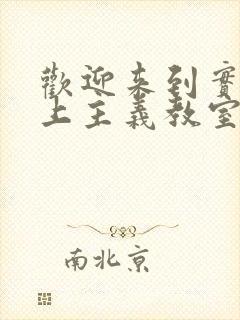 歡迎来到實
上主義教室
南北京